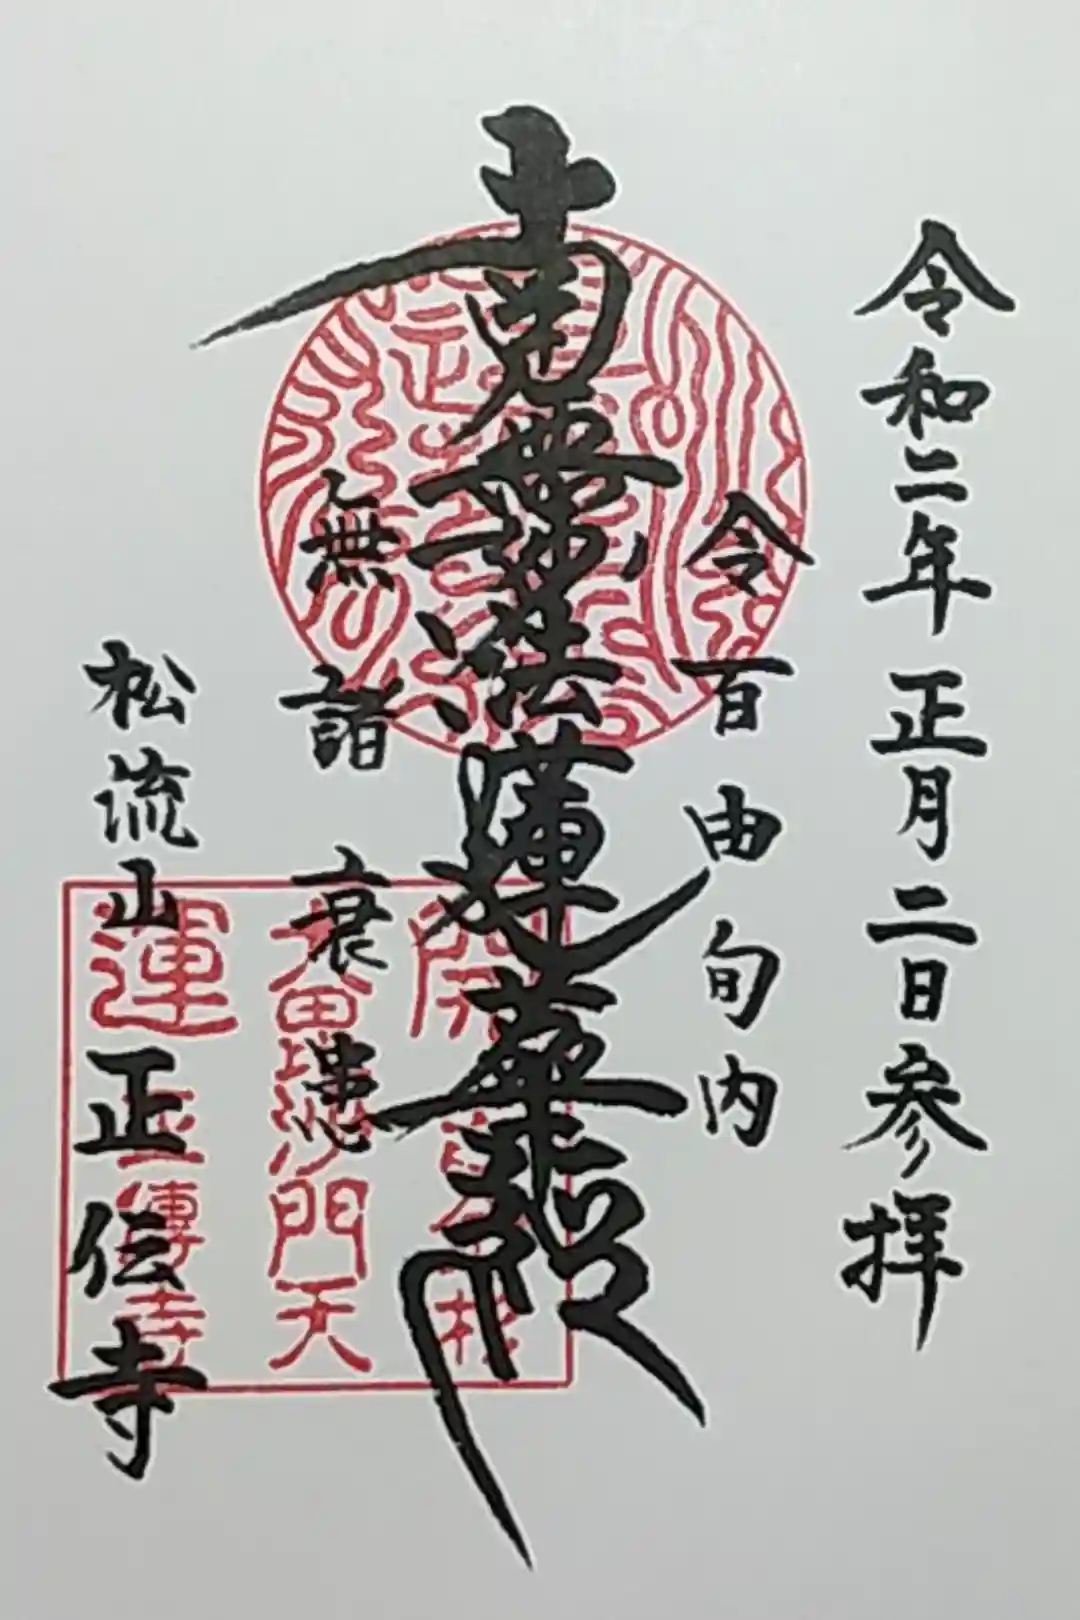 令和二年正月二日参拝
令百由旬内
南無妙法蓮華経
無諸衰患
松流山
正伝寺
開運
毘沙門天
正傳寺